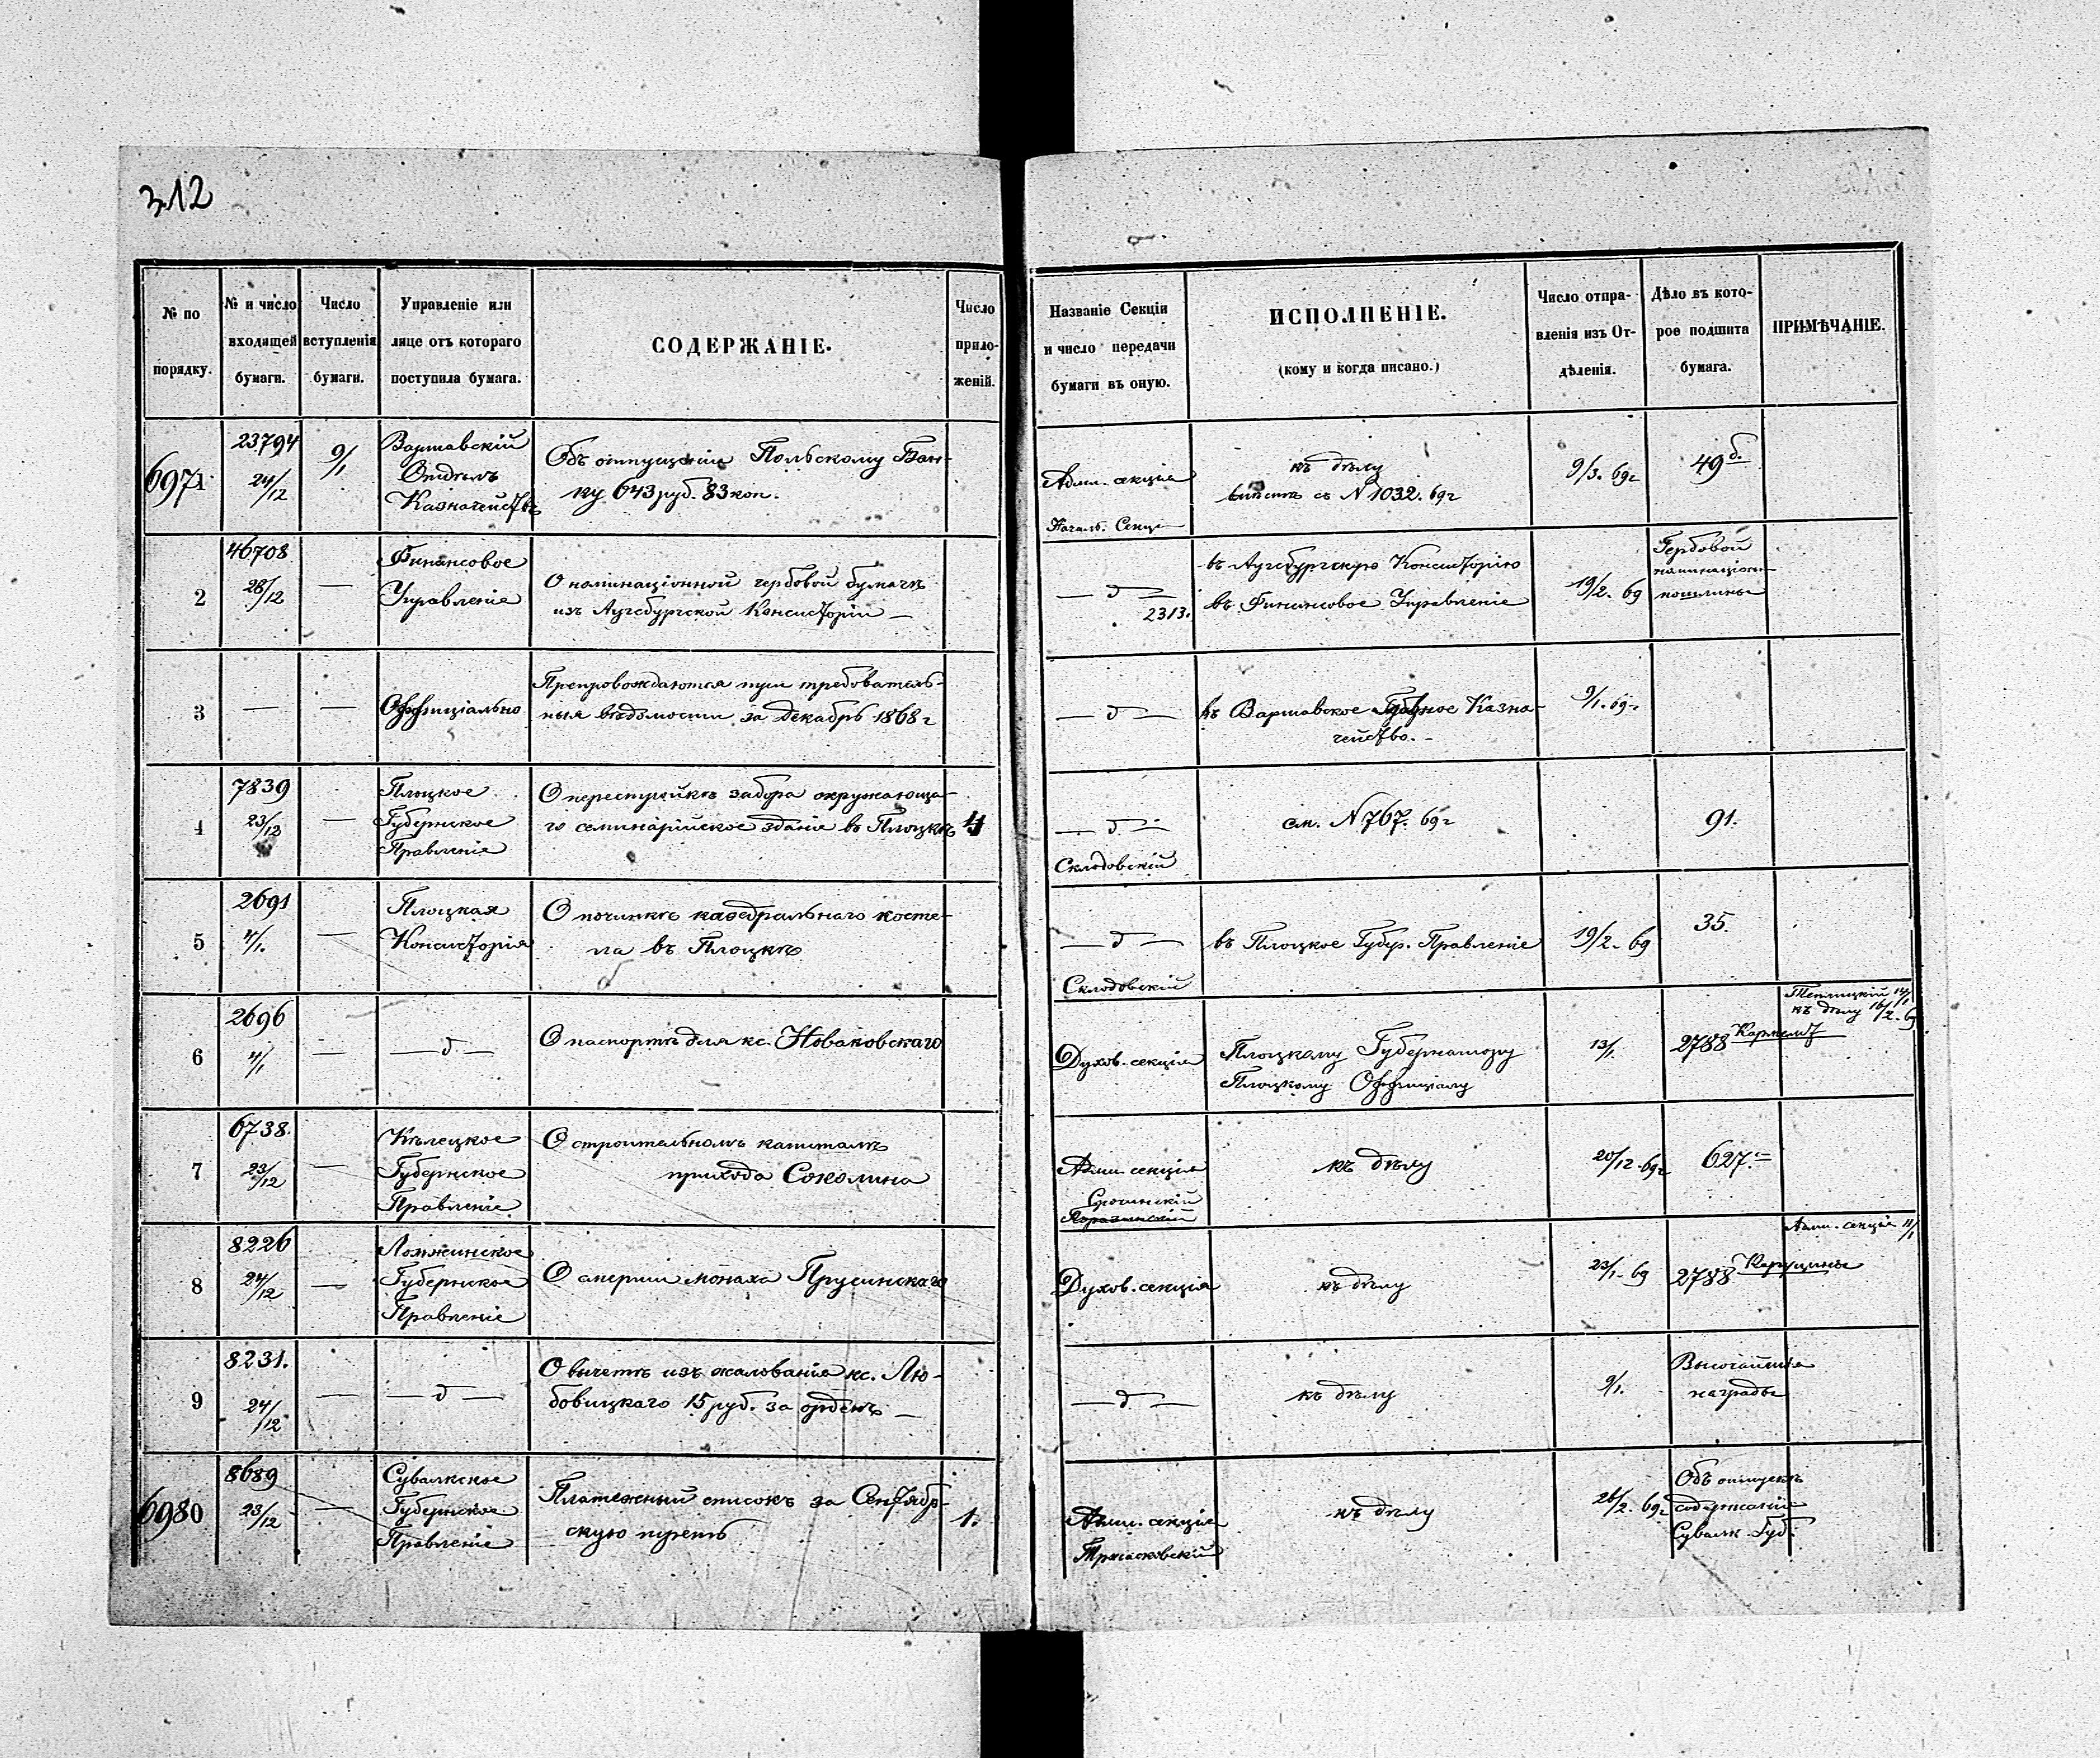 312
№ по порядку.
№ и число входящей бумаги.
Число вступленія бумаги.
Управленіе или лице отъ котораго поступила бумага.
СОДЕРЖАНІЕ.
Число приложеній.
Названіе Секціи и число передачи бумаги въ оную.
ИСПОЛНЕНІЕ.
(кому и когда писано.)
Число отправленія изъ Отдѣленія.
Дѣло въ которое подшита бумага.
ПРИМѢЧАНІЕ.
6971
23794
24/12
9/1
Варшавскій
Отдѣлъ
Казначействъ
Объ отпущеніи Польскому Бан-
ку 643 руб. 83 коп.
Адми. секція
къ дѣлу
вмѣстѣ съ N 1032. 69 г
9/3. 69 г
49 б.
2
46708
28/12
—
Финансовое
Управленіе
О номинаціонной гербовой бумагѣ
изъ Аугсбургской Консисторіи —
Началь. Секц
— д —
2313.
въ Аугсбургскую Консисторію
въ Финансовое Управленіе
19/2. 69
Гербовой
номинаціон-
пошлины
3
—
—
Оффиціально
Препровождаются при требователь-
ныя вѣдомости за декабрь 1868 г
— д —
въ Варшавское Губерное Казна-
чейство. -
9/1. 69 г
4
7839
23/12
—
Плоцкое
Губернское
Правленіе
О перестройкѣ забора окружающа-
го семинарійское зданіе въ Плоцкѣ
4
— д —
см. N 767. 69 г
91.
5
2691
4/1.
—
Плоцкая
Консисторія
О починкѣ каѳедральнаго косте-
ла въ Плоцкѣ
Склодовскій
— д —
въ Плоцкое Губер. Правленіе
19/2. 69
35.
6
2696
4/1
—
— д. —
О паспортѣ для кс. Новаковскаго
Склодовскій
Духов. секція
Плоцкому Губернатору
Плоцкому Оффиціалу
13/1
2788 Кармелит
14/1
къ дѣлу 16/2. 69
7
6738.
23/12
—
Кѣлецкое
Губернское
Правленіе
О строительномъ капиталѣ
прихода Соколина
Адми. секція
къ дѣлу
20/12. 69 г
627.
8
8226
24/12
—
Ломжинское
Губернское
Правленіе
О смерти монаха Прусинскаго
Духов. секція
къ дѣлу
23/1. 69
2788 Капуцины
Адми. секція 11/1
9
8231.
24/12
—
— д —
О вычетѣ изъ жалованія кс. Лю-
бовицкаго 15 руб. за орденъ —
— д —
къ дѣлу
9/1.
Высочайшія
награды
6980
8689
23/12
—
Сувалкское
Губернское
Правленіе
Платежный списокъ за Сентябр-
скую треть
1.
Адми. секція
къ дѣлу
26/2. 69 г
Объ отпускѣ
содержанія
Сувалк. Губ.